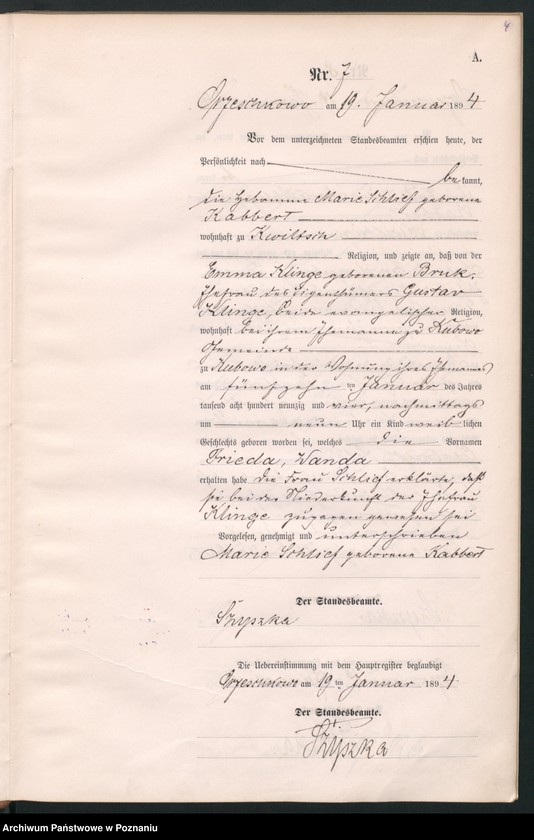 4
A.
Nr. 7
Orzeschkowo am 19. Januar 1894
Vor dem unterzeichneten Standesbeamten erschien heute, der
Persönlichkeit nach
bekannt,
die Hebamme Marie Schlief geborene
Kabbert
wohnhaft zu Kwiltsch
Religion, und zeigte an, daß von der
Emma Klinge geborenen Bruk,
Ehefrau des Eigenthümers Gustav
Klinge, beide evangelischer Religion,
wohnhaft bei ihrem Ehemanne zu Kubowo
Gemeinde
zu Kubowo in der Wohnung ihres Ehemannes
am fünfzehn ten Januar des Jahres
tausend acht hundert neunzig und vier, nachmittags
um neun Uhr ein Kind weiblichen
Geschlechts geboren worden sei, welches die Vornamen
Frieda, Wanda
erhalten habe. Die Frau Schlief erklärte, daß
sie bei der Niederkunft der Ehefrau
Klinge zugegen gewesen sei
Vorgelesen, genehmigt und unterschrieben
Marie Schlief geborene Kabbert
Der Standesbeamte.
Szyszka
Die Uebereinstimmung mit dem Hauptregister beglaubigt
Orzeschkowo am 19 ten Januar 1894
Der Standesbeamte.
Szyszka
Archiwum Państwowe w Poznaniu